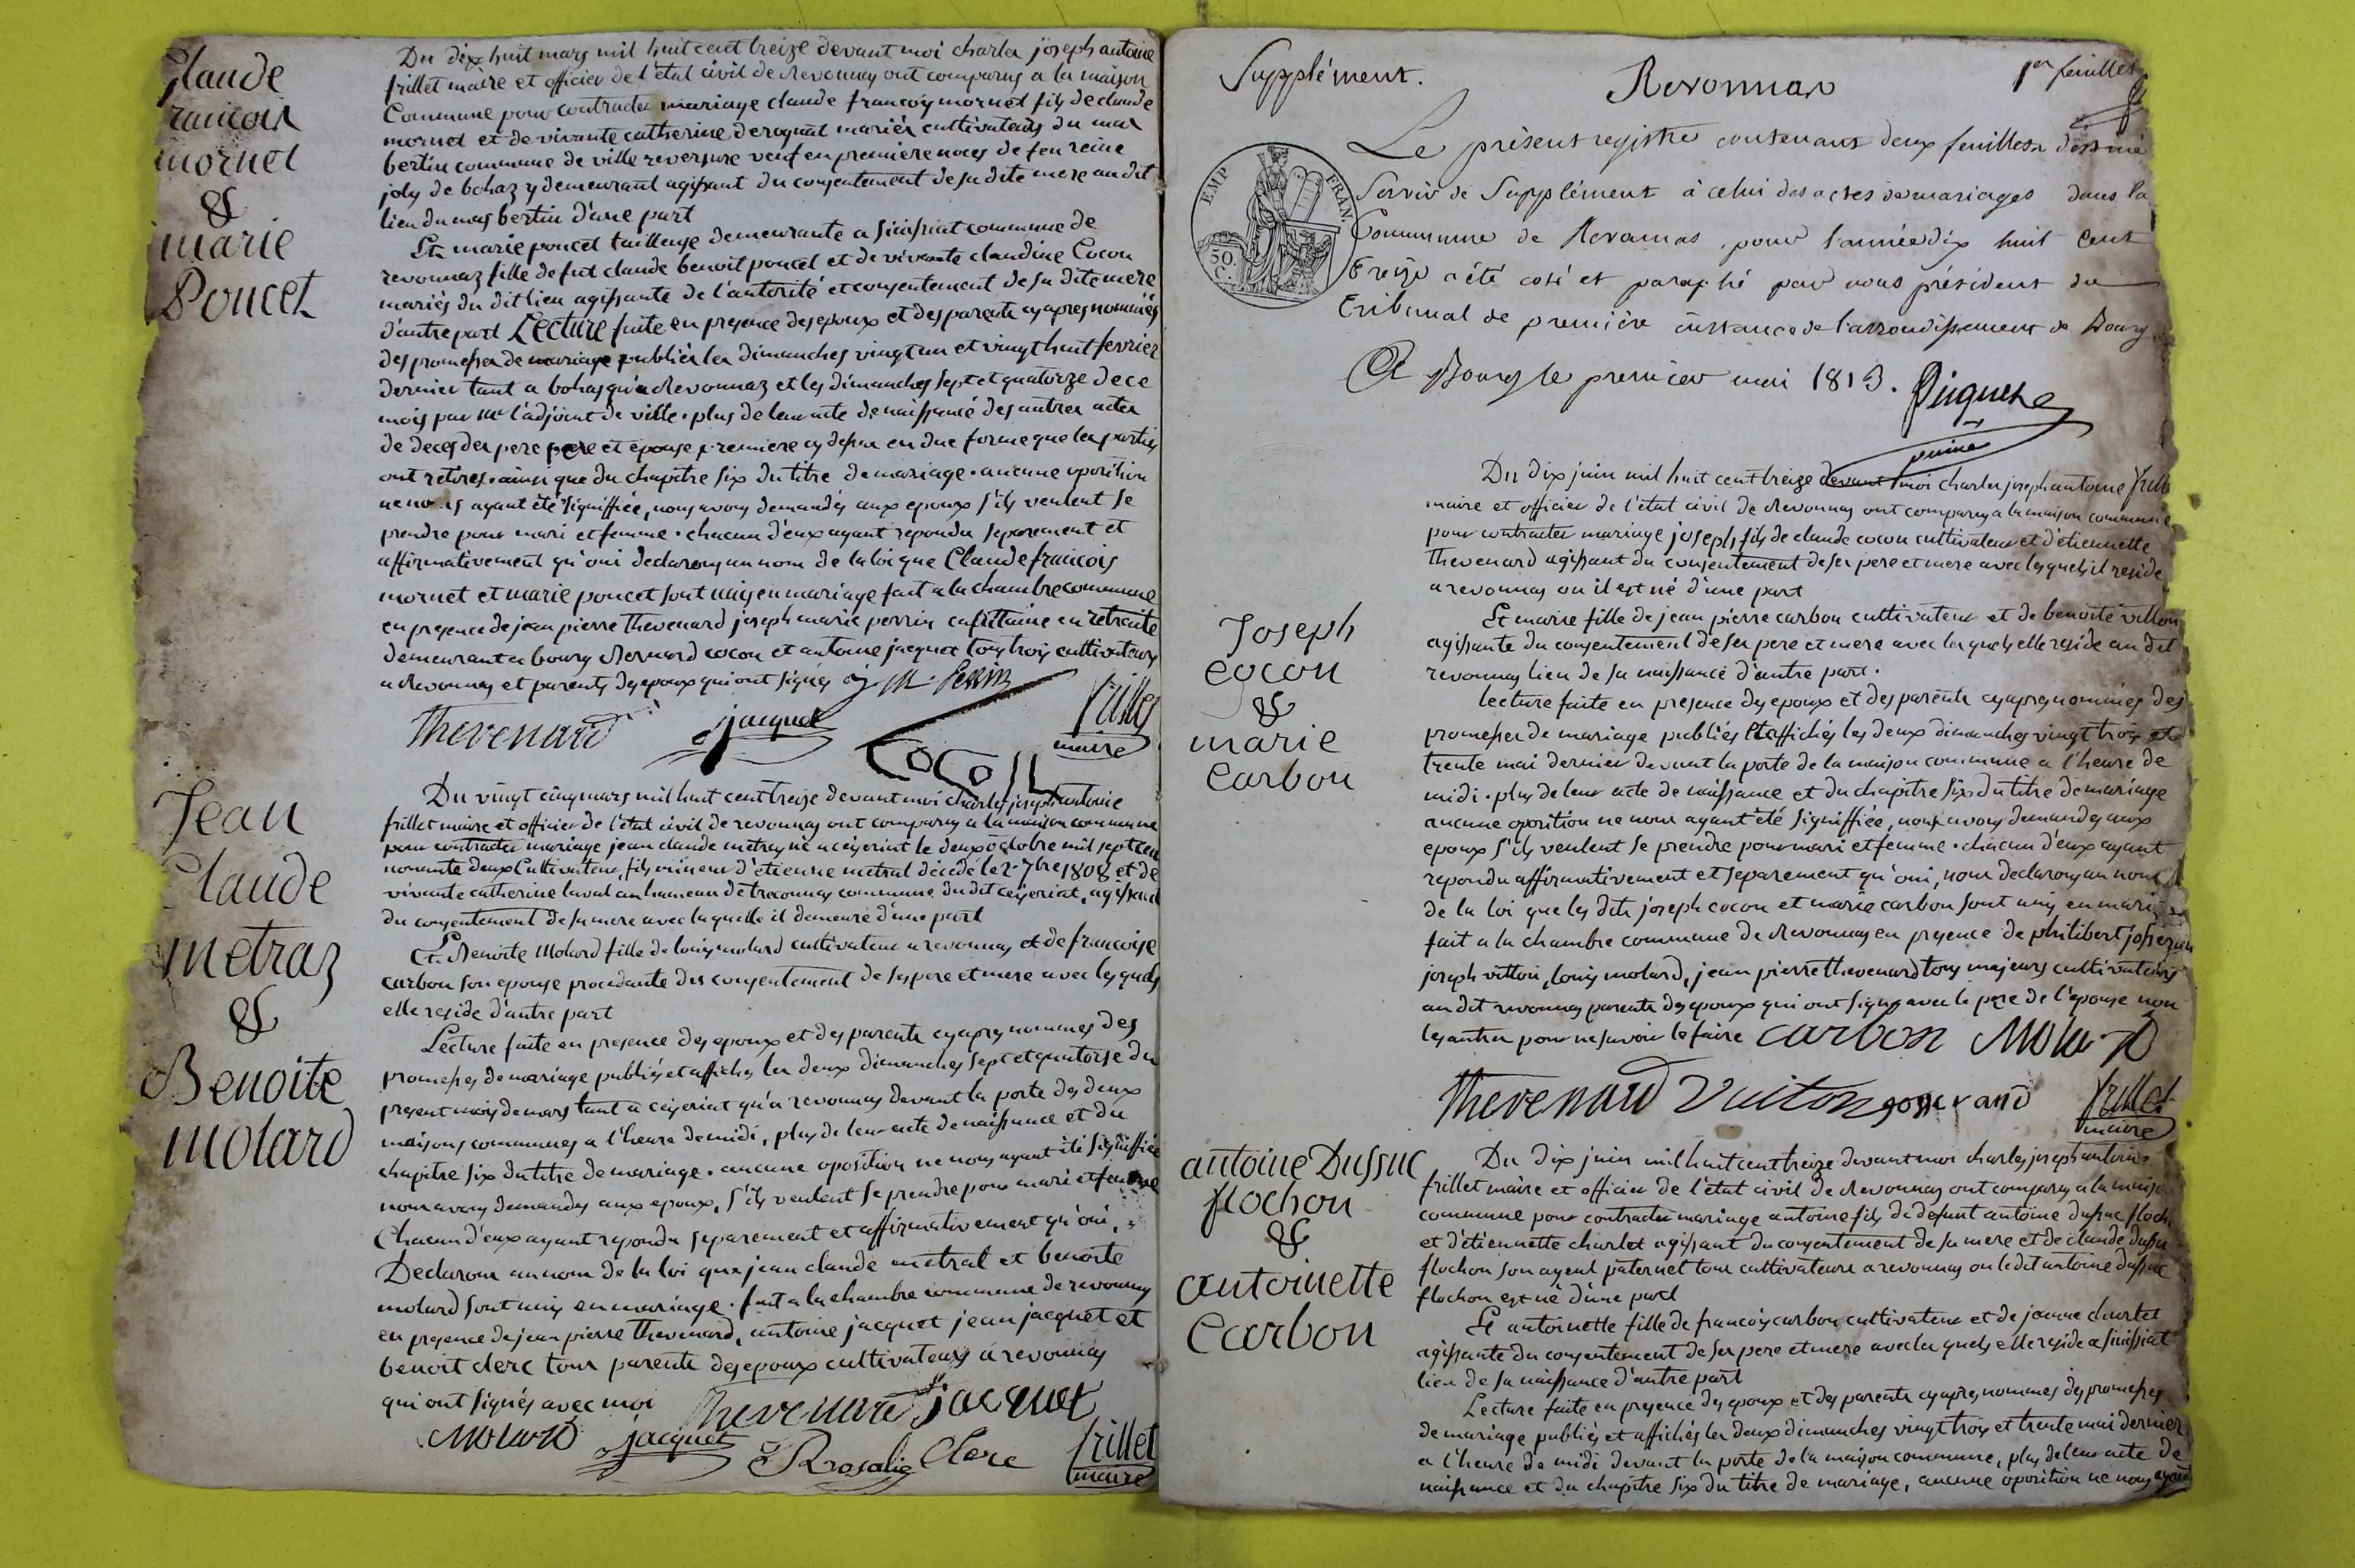 Claude
francois
mornet
&
marie
Poncet
Du dix huit mars mil huit cent treize devant moi charles joseph antoine
frillet maire et officier de l'état civil de revonnas ont comparus a la maison
Commune pour contracter mariage claude françois mornet fils de claude
mornet et de vivante catherine mariés cultivateurs du mas
bertin commune de ville reversure veuf en première noces de feu reine
joly de bohaz y demeurant agissant du consentement de sa dite mere au dit
lieu du mas bertin d'une part
Et marie poncet tailleuse demeurante a simsiat commune de
revonnaz fille de fut claude benoit poncet et de vivante claudine Cocon
mariés du dit lieu agissante de l'autorité et consentement de sa dite mere
d'autre part Lecture faite en presence des epoux et des parents cy apres nommés
des promesses de mariage publiées les dimanches vingt un et vingt huit fevrier
dernier tant a bohas qu'a Revonnaz et les dimanches sept et quatorze de ce
mois par Mr l'adjoint de ville. plus de leur acte de naissance des autres actes
de deces des pere pere et epouse premiere cy dessus en due forme que les parties
ont retirés. ainsi que du chapitre six du titre de mariage. aucune oposition
ne nous ayant été signiffiée, nous avons demandés aux epoux s'ils veulent se
prendre pour mari et femme. chacun d'eux ayant repondu separement et
affirmativement qu'oui declarons au nom de la loi que Claude francois
mornet et marie poncet sont unis en mariage fait a la chambre commune
en presence de jean pierre thevenard joseph marie perrin capitaine en retraite
demeurant a bourg Bernard cocon et antoine jacquet tous trois cultivateurs
a Revonnas et parents des epoux qui ont signés j M. Perrin
frillet
maire
Thevenard jacquet
COCON
Jean
Claude
metraz
&
Benoite
molard
Du vingt cinq mars mil huit cent treize devant moi charles joseph antoine
frillet maire et officier de l'état civil de revonnas ont comparus a la maison commune
pour contracter mariage jean claude metraz né a ceyseriat le deux octobre mil sept cen
nonante deux Cultivateur, fils mineur d'étienne metral décédé le 2 7bre 1808 et de
vivante catherine laval au hameau de traconnas commune du dit ceyseriat, agissant
du consentement de sa mere avec laquelle il demeure d'une part
Et Benoite Molard fille de louis molard cultivateur a revonnas et de francoise
carbon son epouse procedante du consentement de ses pere et mere avec les quels
elle reside d'autre part
Lecture faite en presence des epoux et des parents cy apres nommés des
promesses de mariage publiés et affichés les deux dimanches sept et quatorse du
present mois de mars tant a ceyseriat qu'a revonnas devant la porte des deux
maisons communes a l'heure de midi, plus de leur acte de naissance et du
chapitre six du titre de mariage. aucune oposition ne nous ayant été signiffiée
nous avons demandés aux epoux, s'ils veulent se prendre pour mari et femme
Chacun d'eux ayant repondu separement et affirmativement qu'oui,
Declarons au nom de la loi que jean claude metral et benoite
molard sont unis en mariage. fait a la chambre commune de revonnas
en presence de jean pierre thevenard, antoine jacquet jean jacquet et
benoit clerc tous parents des epoux cultivateurs a revonnas
qui ont signés avec moi Thevenard jacquet
Molard jacquet Rosalie Clerc frillet
maire
Supplément. Revonnas 1er feuillet
Le présent registre contenant deux feuilles destiné
Servir de Supplément à celui des actes de mariages dans la
Commune de Revonnas, pour l'année dix huit Cent
treize a été coté et paraphé par nous président du
Tribunal de première instance de l'arrondissement de Bourg
A Bourg le premier mai 1813.
EMP FRAN.
50.
C.
Joseph
cocon
&
marie
Carbon
Du dix juin mil huit cent treize devant moi charles joseph antoine frill
maire et officier de l'état civil de revonnas ont comparus a la maison commune
pour contracter mariage joseph fils de claude cocon cultivateur et d'étiennette
thevenard agissant du consentement de ses pere et mere avec lesquels il reside
a revonnas ou il est né d'une part
Et marie fille de jean pierre carbon cultivateur et de benoite villon
agissante du consentement de ses pere et mere avec les quels elle reside au dit
revonnas lieu de sa naissance d'autre part.
Lecture faite en presence des epoux et des parents cy apres nommés des
promesses de mariage publiés et affichés les deux dimanches vingt trois et
trente mai dernier devant la porte de la maison commune a l'heure de
midi. plus de leur acte de naissance et du chapitre six du titre de mariage
aucune oposition ne nous ayant été signiffiée, nous avons demandés aux
epoux s'ils veulent se prendre pour mari et femme. chacun d'eux ayant
repondu affirmativement et separement qu'oui, nous declarons au nom
de la loi que les dits joseph cocon et marie carbon sont unis en mariage
fait a la chambre commune de Revonnas en presence de philibert josserand
joseph vitton, louis molard, jean pierre thevenard tous majeurs cultivateurs
au dit revonnas parents des epoux qui ont signé avec le pere de l'epouse non
les autres pour ne savoir le faire carbon Molard
Thevenard Vuiton josserand frillet
maire
antoine Dussuc
flochon
&
antoinette
Carbon
Du dix juin mil huit cent treize devant moi charles joseph antoine
frillet maire et officier de l'état civil de Revonnas ont comparus a la maison
commune pour contracter mariage antoine fils de defunt antoine dussuc floch
et d'étiennette charlet agissant du consentement de sa mere et de claude dussuc
flochon son ayeul paternel tous cultivateurs a revonnas ou le dit antoine dussuc
flochon est né d'une part
Et antoinette fille de françois carbon cultivateur et de jeanne charlet
agissante du consentement de ses pere et mere avec les quels elle reside a simsiat
lieu de sa naissance d'autre part
Lecture faite en presence des epoux et des parents cy apres nommés des promesses
de mariage publiés et affichés les deux dimanches vingt trois et trente mai dernier
a l'heure de midi devant la porte de la maison commune, plus de leur acte de
naissance et du chapitre six du titre de mariage, aucune oposition ne nous ayant